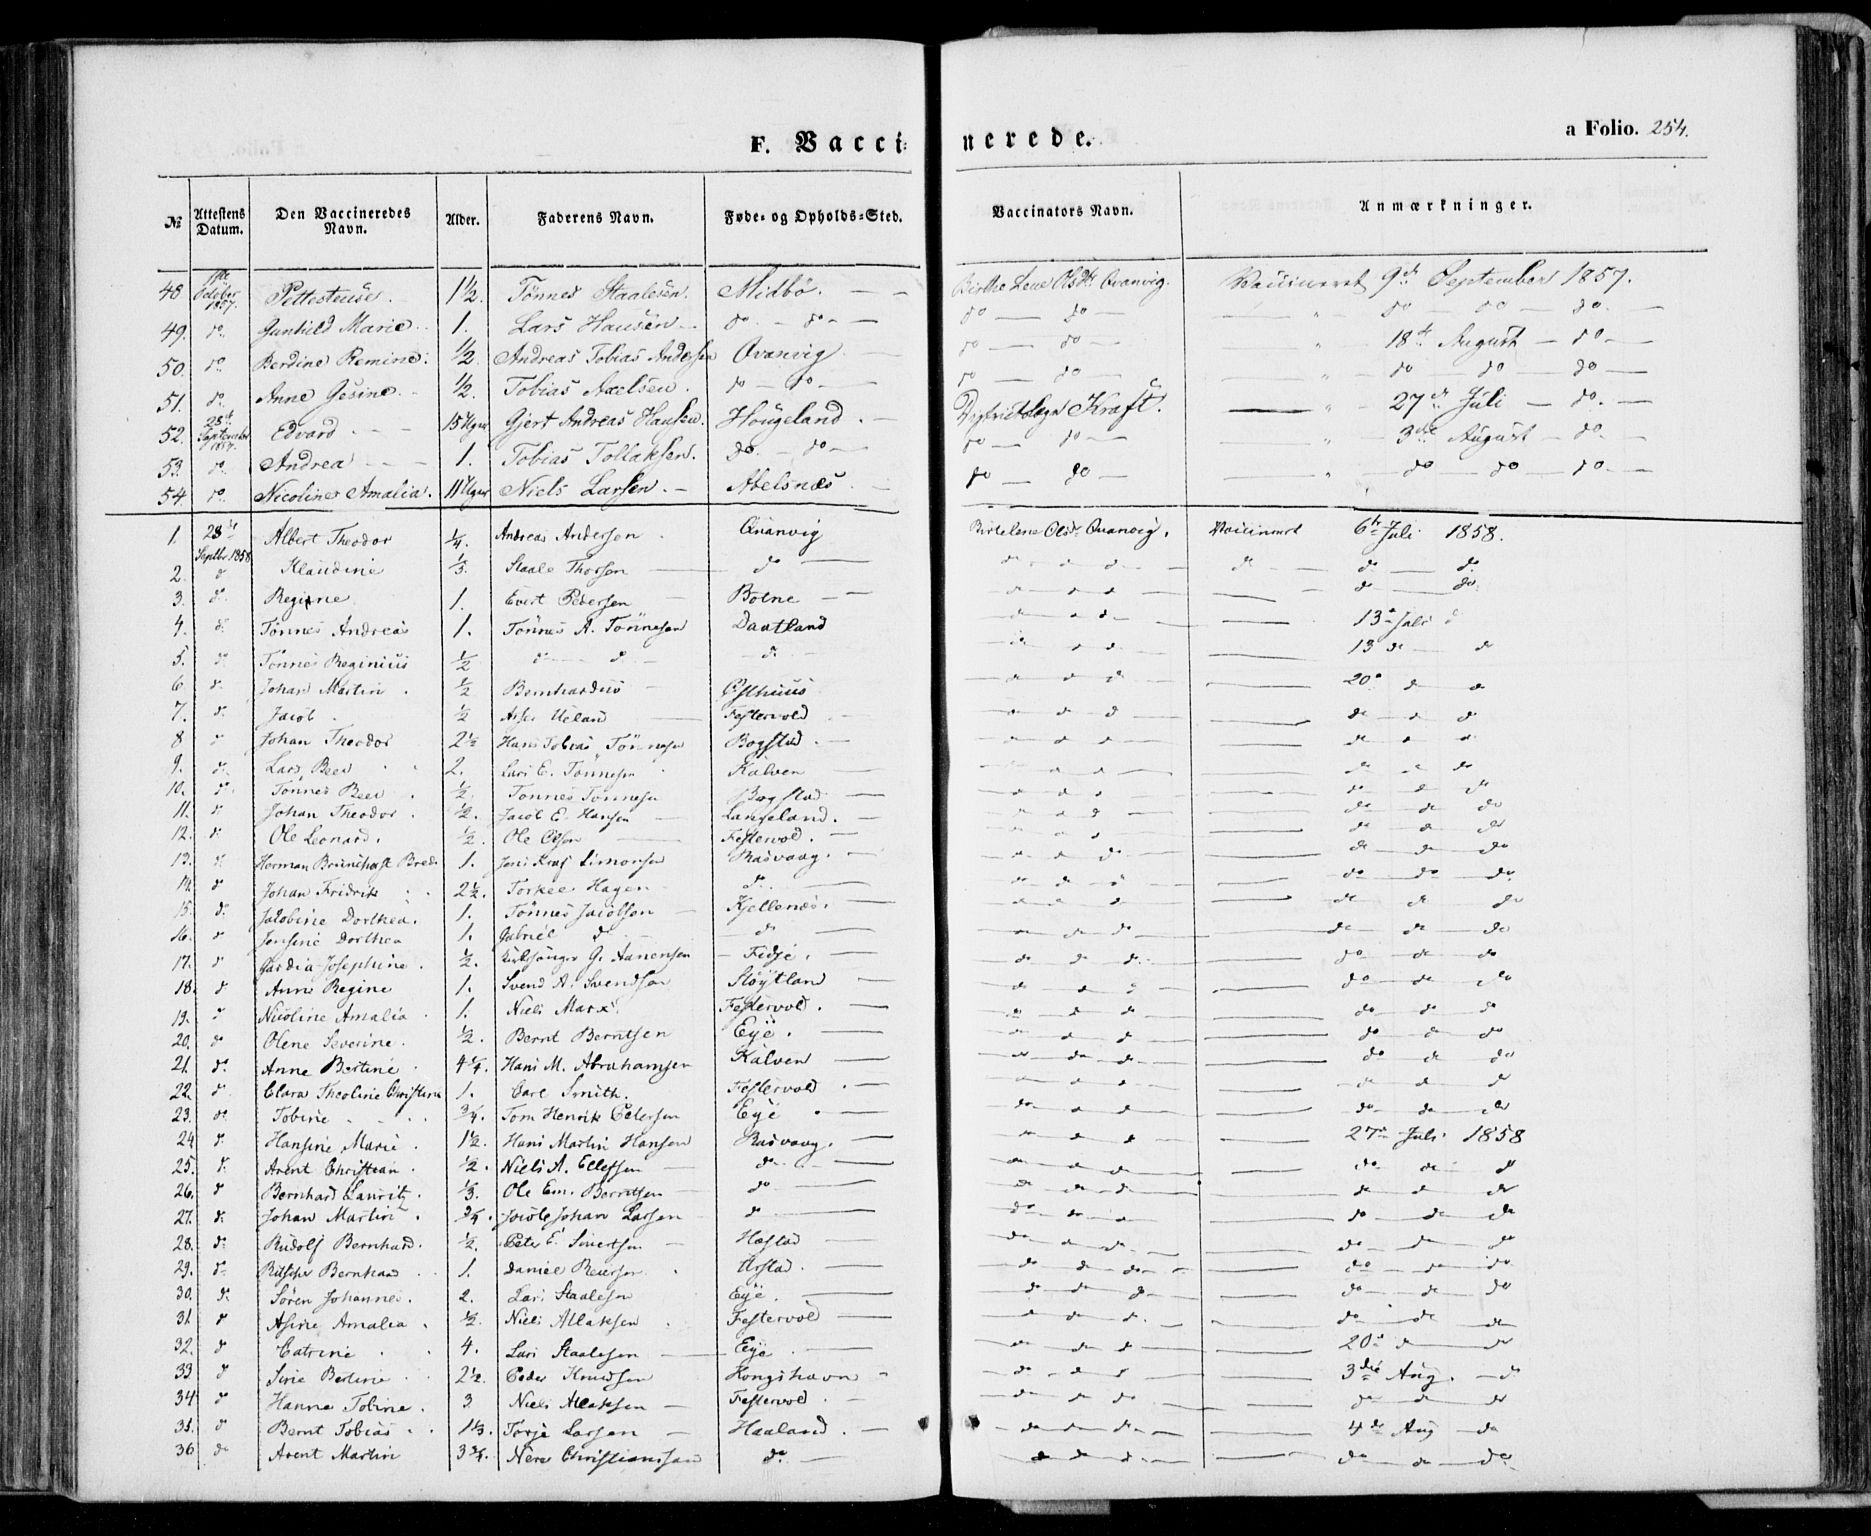 F. Vacci-nerede.
a Folio. 254.
№ Attestens Datum. Den Vaccineredes Navn. Alder. Faderens Navn. Føde- og Opholds-Sted. Vaccinators Navn. Anmærkninger.
48 1ste October 1857. 1½. Tönnes Staalesen. Midbö. — — Birthe Lene Olsdtr Qvanvig. Vaccineret 9de September 1857.
49. do Gunhild Marie 1. Lars Hansen — do — do — do — do — " — do — do — do —
50. do Berdine Remine. ½. Andreas Tobias Andersen Qvanvig — do — do — — " — 18de August — do —
51. do Anne Gesine. ½. Tobias Axelsen. do — do — do — do — — " — do — do — do —
52. 28de September 1857. Edvard — — 15 Uger Gjert Andreas Hansen. Hougeland. — Districtslæge Kraft. — " — 27de Juli — do —
53. do Andrea — — 1. Tobias Tollaksen. do — do — do — do — — " — 3die August — do —
54 do Nicoline Amalia. 11 Uger Niels Larsen. — Abelsnæs — do — do — — " — do — do — do —
1. 28de Septbr. 1858 Albert Theodor ¼. Andreas Andersen. Qvanvig Birtelene Olsdtr Qvanvig. Vaccineret 6te Juli 1858.
2. d Klaudine ⅓. Staale Thorsen — do — do — do do — do
3. do Regine 1. Evert Pedersen — Botne — do — do — do
4. d. Tönnes Andreas 1. Tönnes A. Tönnesen Daatland — 13 Juli d
5. d. Tönnes Reginius ½ d — d — d — 13 de — d
6 d. Johan Martin. ½ Bernhardus — Östhuus — 20 d d
7. d. Jacob. ½ Asser Ueland Festervold — de d d
8 d Johan Theodor 2½ Hans Tobias Tönnesen Bogstad. — de d d
9. d. Lars Beer 2. Lars E. Tönnesen Kalven — de de do
10. d. Tönnes Beer. ½. Tönnes Tönnesen Bogstad — d d do
11. d Johan Theodor. ½. Jacob E. Hansen — Langeland. — do de do
12. d Ole Leonard. ½. Ole Olsen Festervold. — d d do
13. d. Herman Brunchast Bred. 1. Jens Kraf Simonsen Rasvaag. — de do do
14. d Johan Fridrik 2½. Torkel Hagen — d. — do do do
15. d. Jacobine Dorthea. 1. Tönnes Jacobsen — Kjellenæs. — de de do
16. d Jensine Dorthea 1. Gabriel d. d — de de do
17. d Josephine. ½. Kirksanger G. Aanensen — Fidje. — do de do
18. d Anne Regine 1. Svend A. Svendsen Stöytland — do de do
19. d Nicoline Amalia. 1. Niels Marx. Festervold. — do do do
20. d Olene Severine. ½. Bernt Berntsen Eye. — do do do
21. do Anne Bertine 4¼. Hans M. Abrahamsen Kalven — do d do
22. d Clara Theoline Christine 1. Carl Smith. Festervold. — d d do
23. do Tobine ¾. Tom Henrik Petersen Eye — do do do
24 d. Hansine Marie. 1½. Hans Martin Hansen Rasvaag. — 27 Juli 1858
25. d. Arent Christian. ½. Niels A. Ellefsen do — do de d
26. d Bernhard Lauritz. ⅓. Ole Em. Berntsen — do — de d do
27. d. Johan Martin. ¾. Jacob Johan Larsen — do — do do do
28. do Rudolf Bernhard. ½. Peter E. Sivertsen — Hæstad — do do do
29. do Bernhard 1. Daniel Reiersen. Urstad. — do do do
30. d. Sören Johannes. 2. Lars Staalesen Eye. — do do do
31. d Asine Amalia. ½. Niels Allaksen. Festervold — do de de
32. d Catrine 4. Lars Staalesen Eye — 20 d do
33 d Sine Bertine 2½. Peder Knudsen Kongshavn — 3die Aug. — do
34 d Hanne Tobine. 3 Niels Allaksen — Festervold. — do de do
35. d Bernt Tobias. 1⅓. Torje Larsen — Haaland. — 4de Aug — do
36 do Arent Martin 3¾. Christiansen do — do do do